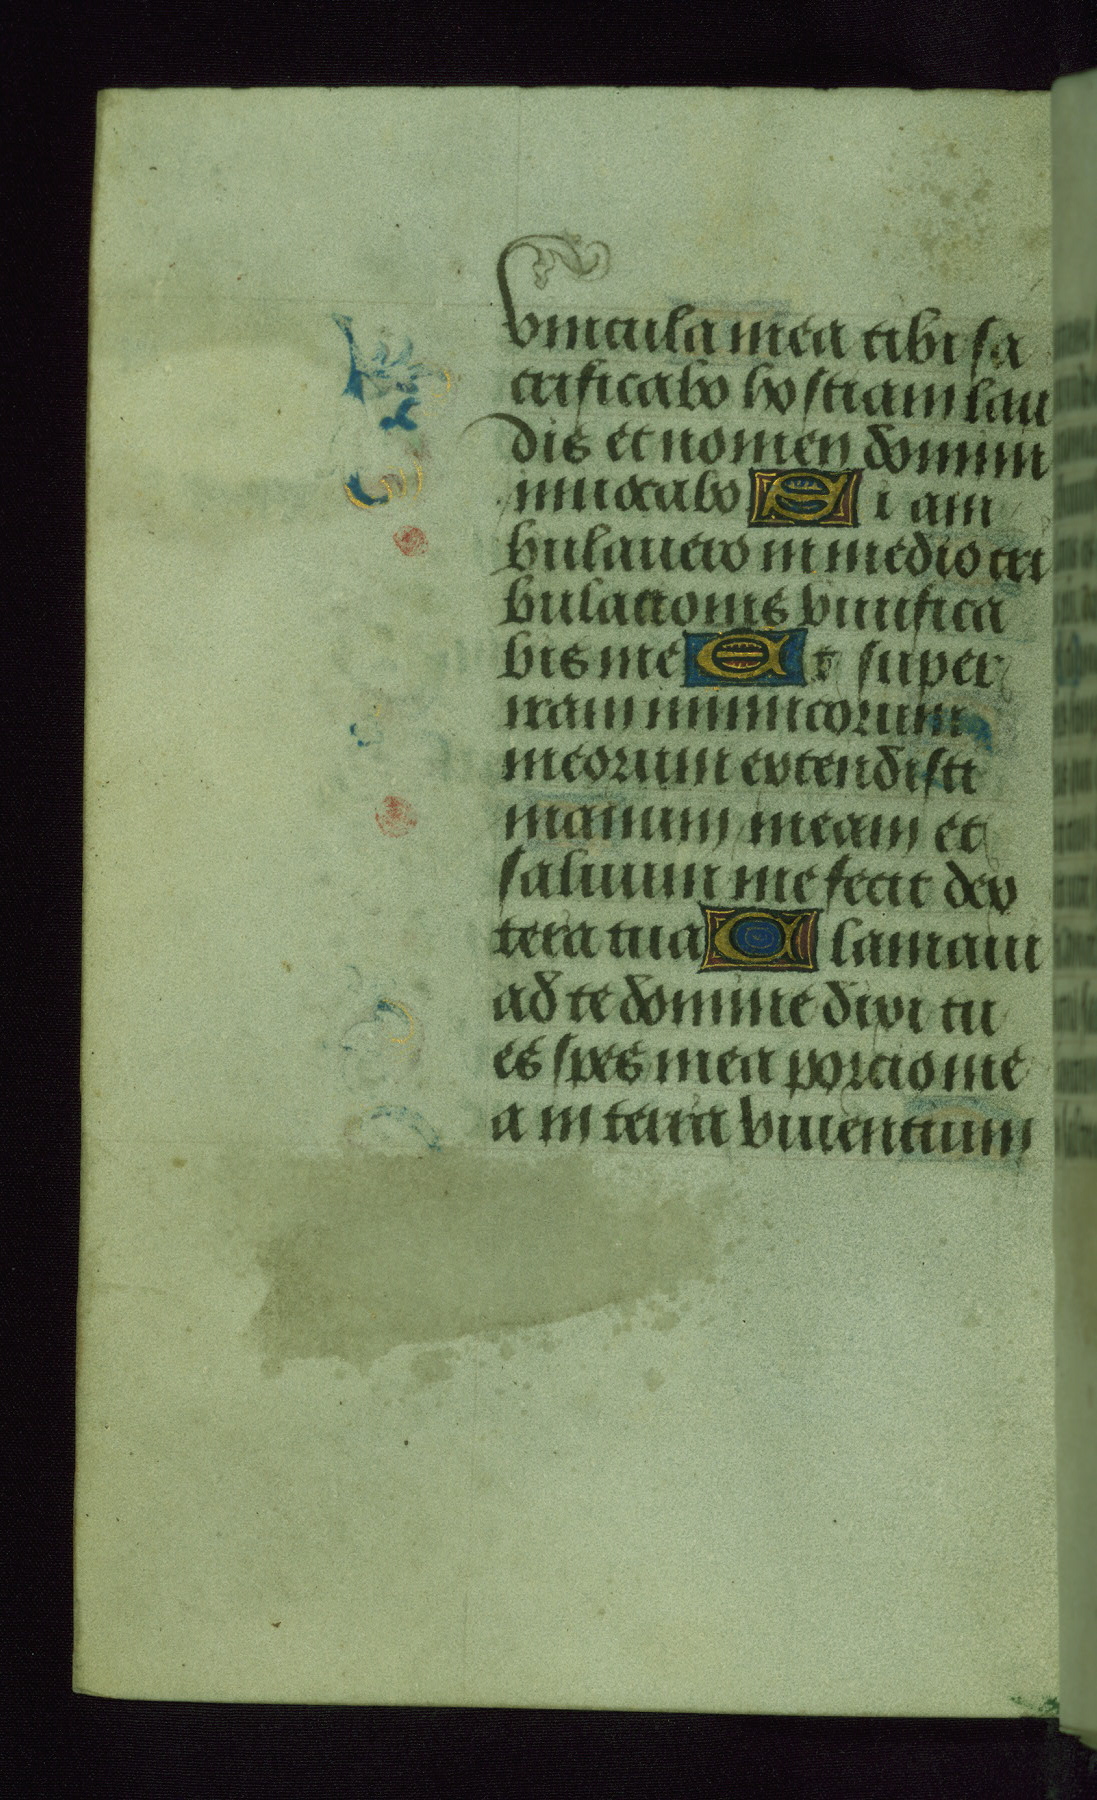 vincula mea tibi sa
crificabo hostiam lau
dis et nomen domini
inuocabo Si am
bulauero in medio tri
bulationis viuifica
bis me Et super
iram inimicorum
meorum extendisti
manum meam et
saluum me fecit dex
tera tua Clamaui
ad te domine dixi tu
es spes mea porcio me
a in terra viuentium